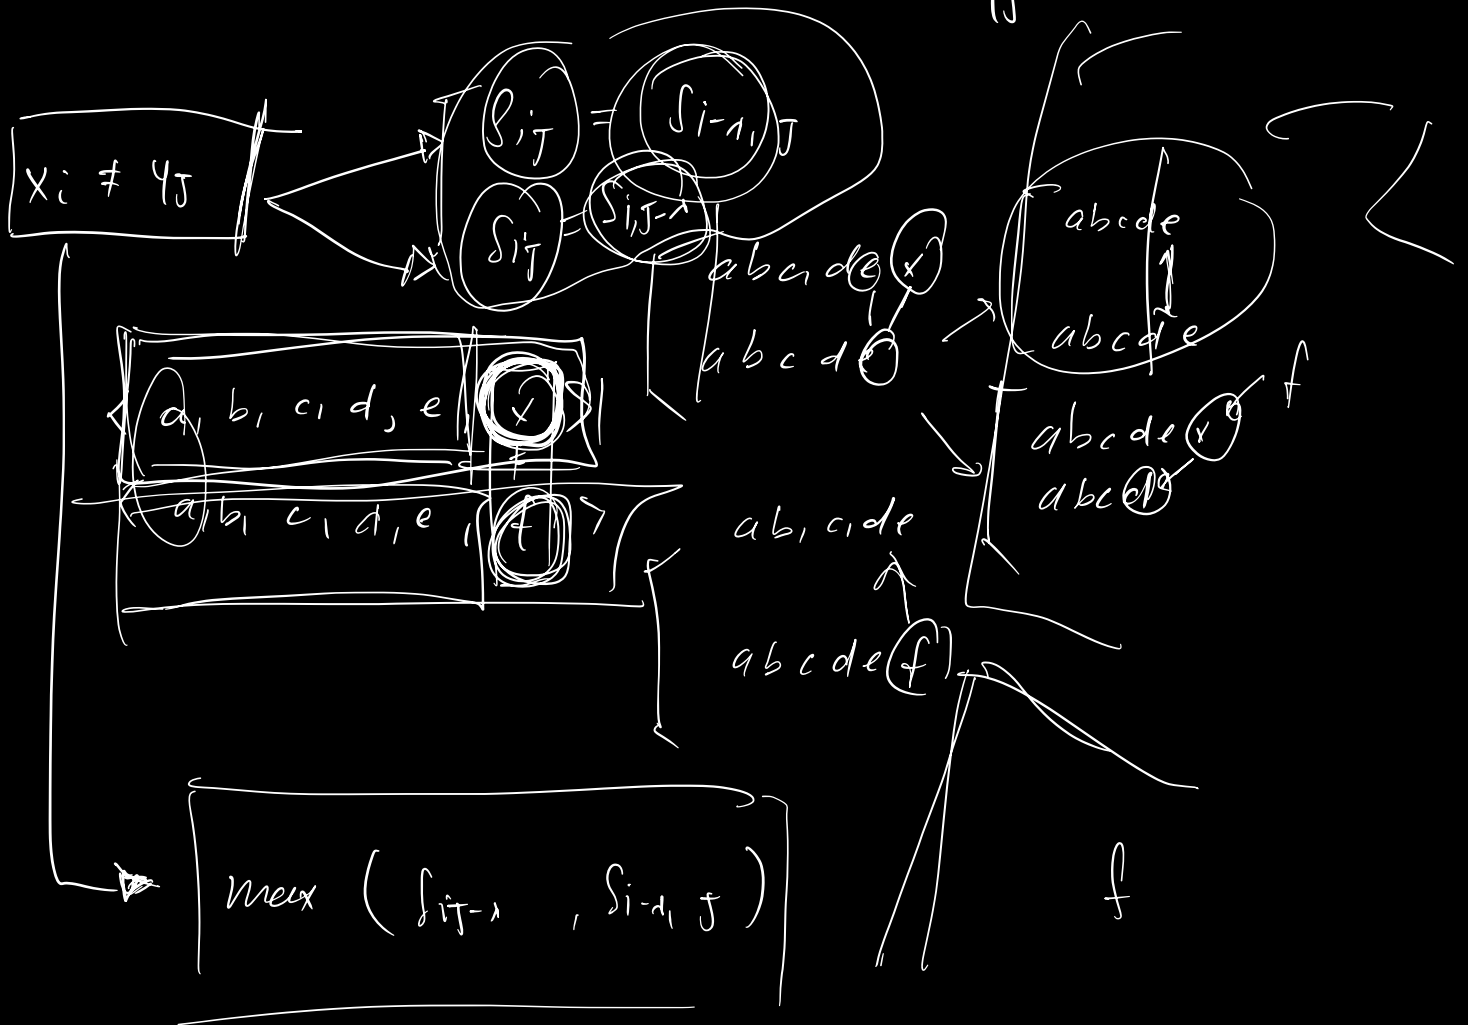 xi ≠ yj
Sij = Si-1, j
Sij = Si,j-1
a b c, d e x
a b c d e
a, b, c, d, e, x
≠
a, b, c, d, e, f >
abcde
abcde
f
abcde x
abcd
ab, c, de
abcde f
max ( Sij-1 , Si-1, j )
f